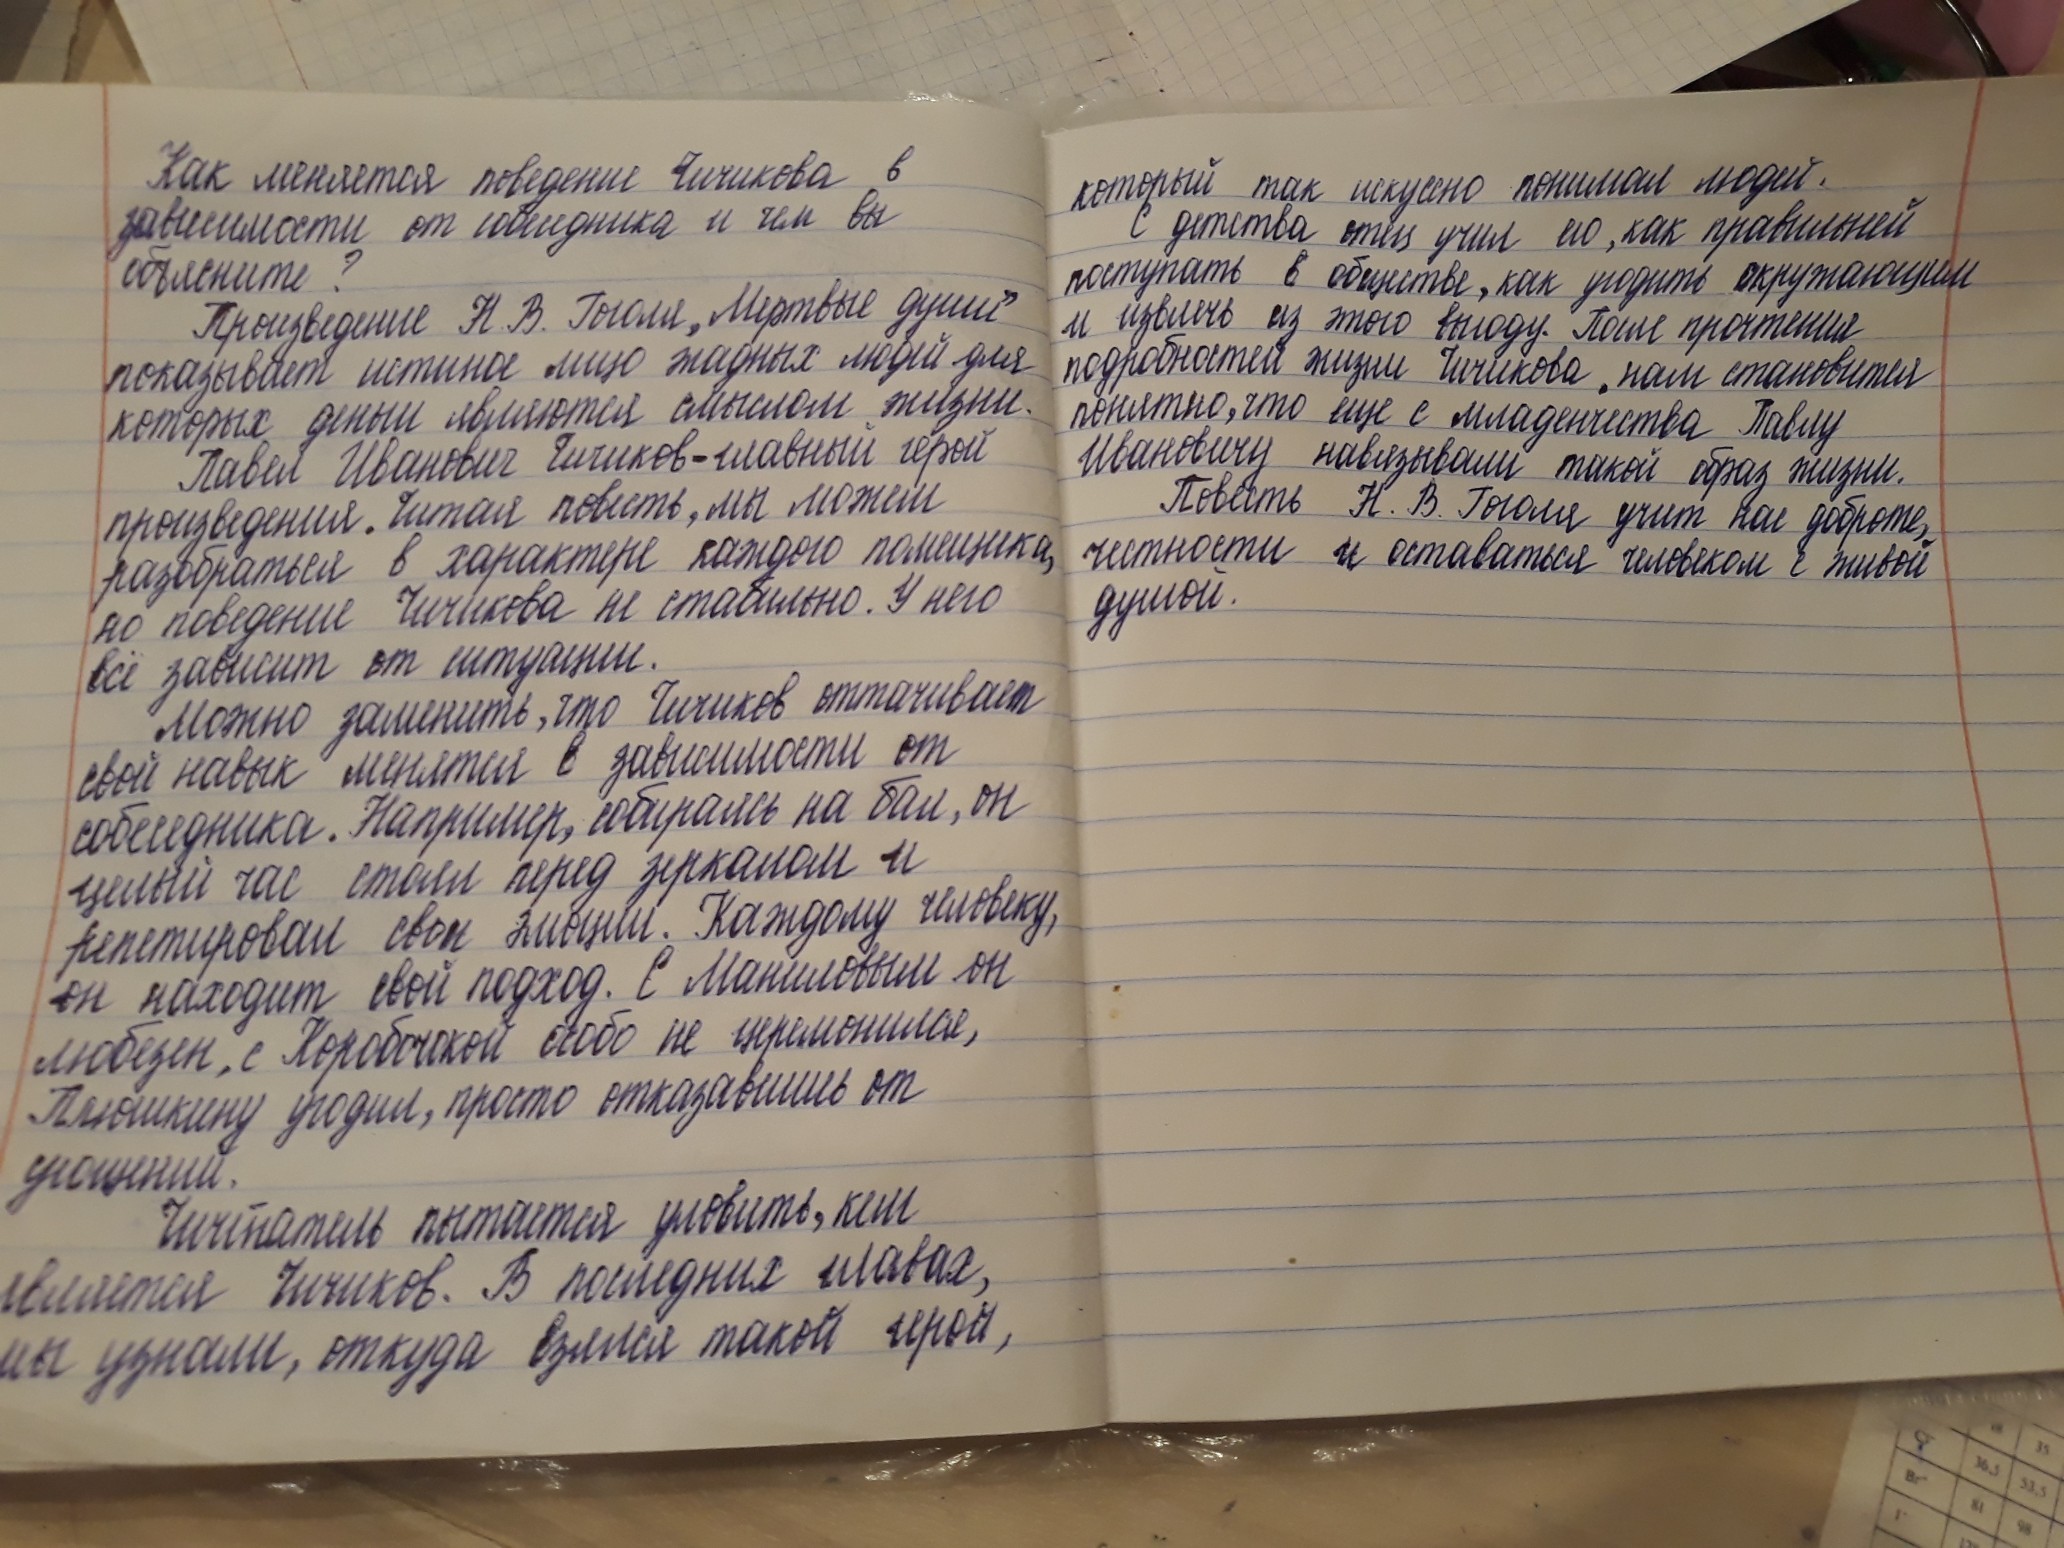 Как меняется поведение Чичикова в
зависимости от собеседника и чем вы
объясните?
Произведение Н. В. Гоголя „Мертвые души"
показывает истиное лицо жадных людей для
которых деньги являются смыслом жизни.
Павел Иванович Чичиков-главный герой
произведения. Читая повесть, мы можем
разобраться в характере каждого помещика,
но поведение Чичикова не стабильно. У него
всё зависит от ситуации.
Можно заметить, что Чичиков оттачивает
свой навык менятся в зависимости от
собеседника. Например, собираясь на бал, он
целый час стоял перед зеркалом и
репетировал свои эмоции. Каждому человеку,
он находит свой подход. С Маниловым он
любезен, с Коробочкой особо не церемонился,
Плюшкину угодил, просто отказавшись от
угощений.
Чичтатель пытается уловить, кем
является Чичиков. В последних главах,
мы узнали, откуда взялся такой герой,
который так искуссно понимал людей.
С детства отец учил его, как правильней
поступать в обществе, как угодить окружающим
и извлечь из этого выгоду. После прочтения
подробностей жизни Чичикова, нам становится
понятно, что еще с младенчества Павлу
Ивановичу навязывали такой образ жизни.
Повесть Н. В. Гоголя учит нас доброте,
честности и оставаться человеком с живой
душой.
35
36,5
53,5
Br⁻
81
98
I⁻